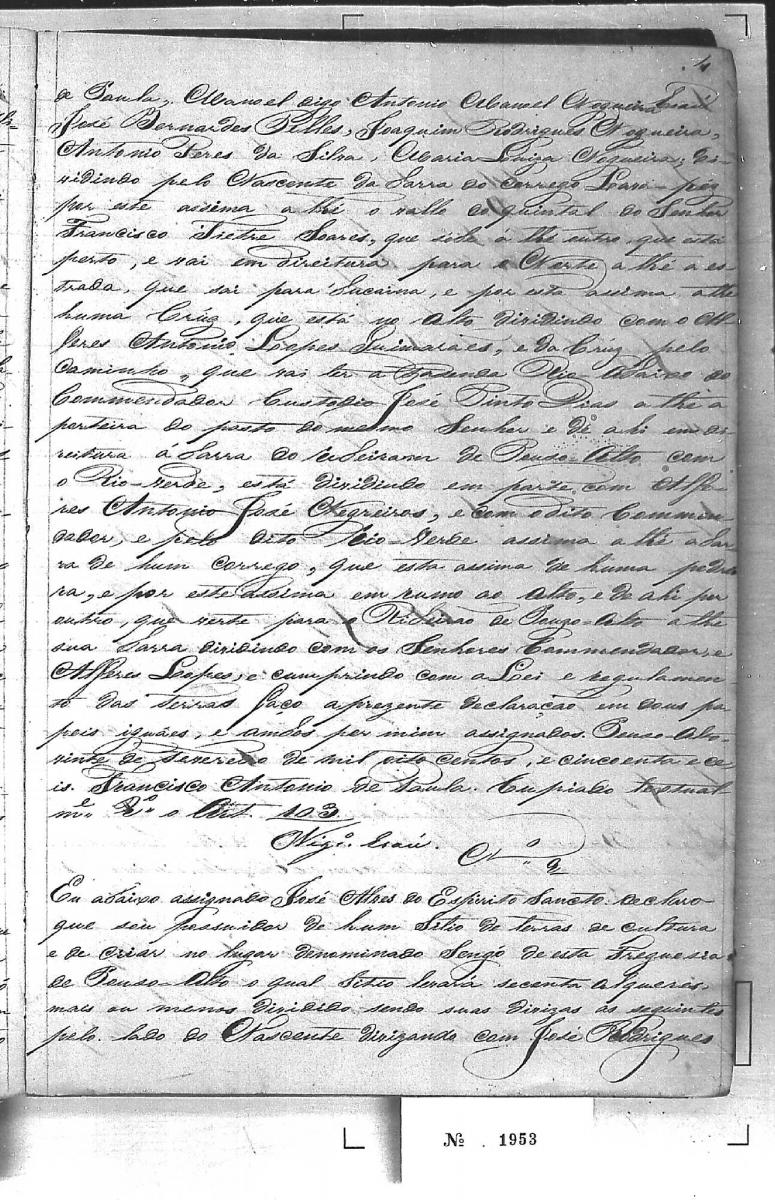 4
de Paula, Manoel digo Antonio Manoel Nogueira
José Bernardes Pilles, Joaquim Rodrigues Nogueira,
Antonio Peres da Silva, Maria Luiza Nogueira, di-
vidindo pelo Nascente da barra do corrego
por este assima a thé o vallo do quintal do Senhor
Francisco Soares, que a thé outro que está
perto, e vai em direitura para o Norte a thé a es-
trada, que vai para Sucaina, e por esta assima a the
huma Crúz, que está no Alto dividindo com o Al-
feres Antonio Lopes Guimaraes, e da Crúz pelo
caminho, que vai ter a Fazenda do
Commendador Custodio José Pinto Dias a thé a
porteira do pasto do mesmo Senhor e de ahi em di-
reitura á barra do Ribeiram de Pouso-Alto com
o Rio-verde, está dividindo em parte com Alfe-
res Antonio José Negreiros, e com o dito Commen-
dador, e pelo dito Rio-Verde assima a thé a bar-
ra de hum corrego, que esta assima de huma pedrei
ra, e por este assima em rumo ao Alto, e de ahi por
outro, que verte para o Ribeirão de Pouzo-Alto a thé
sua barra dividindo com os Senhores Commendador, e
Alferes Lopes, e cumprindo com a Lei e regulamen-
to das terras faço a prezente declaração em dous pa
peis iguáes, e ambos por mim assignados. Pouso-Alto
vinte de Fevereiro de mil oito centos, e cincoenta e ce
is. Francisco Antonio de Paula. Cupiado textual
me. o Art. 103
Vigro.
No. 3
Eu abaixo assignado José Alves do Espirito Sancto declaro
que sou possuidor de hum Sitio de terras de cultura
e de criar no lugar denominado Sengó de esta Freguesia
de Pouso-Alto o qual Sitio levará secenta alqueres
mais ou menos dividido sendo suas divizas as seguintes
pelo lado do Nascente divizando com José Rodrigues
No. 1953